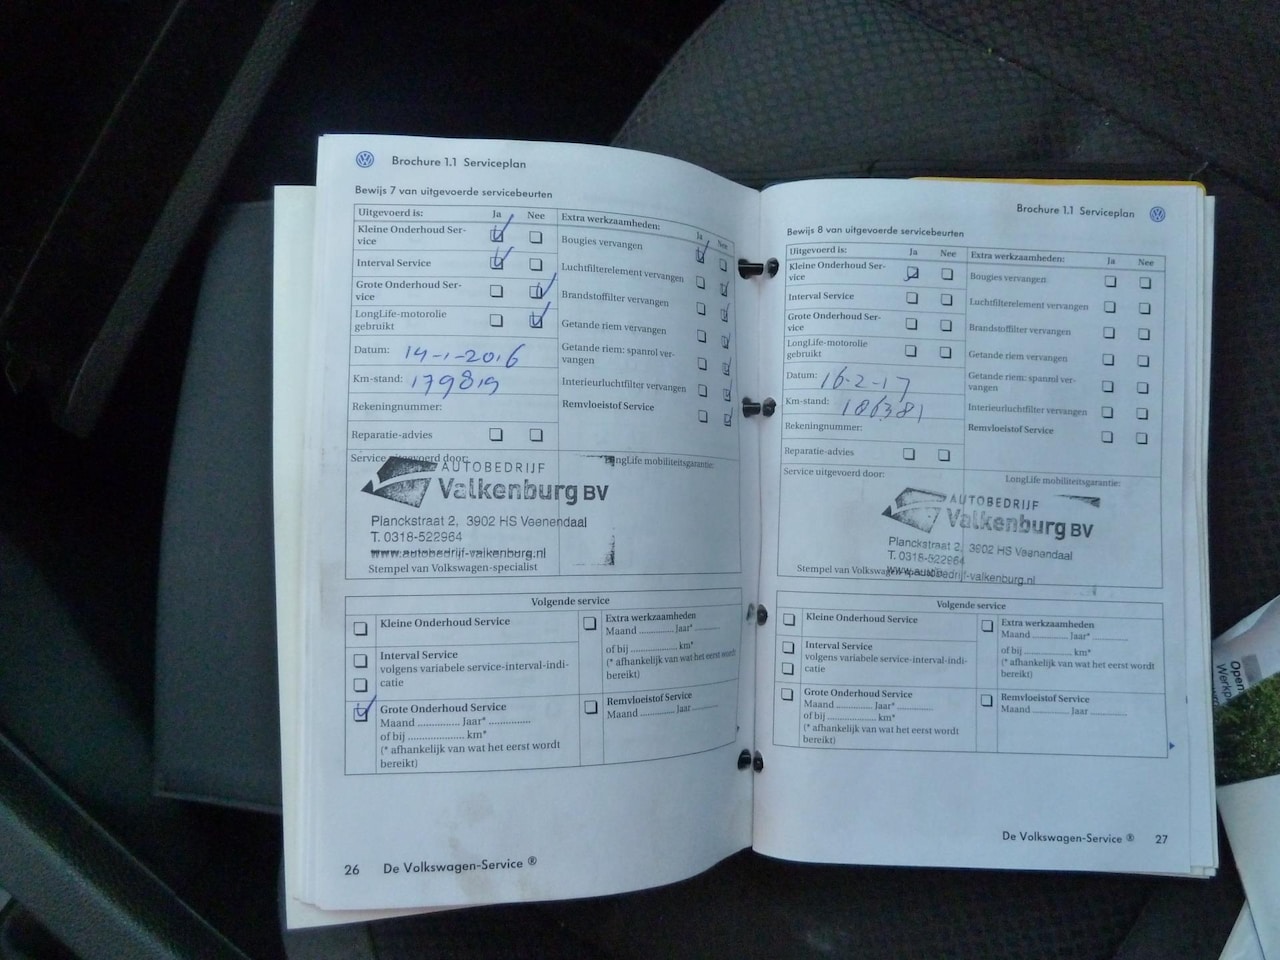 Brochure 1.1 Serviceplan
Bewijs 7 van uitgevoerde servicebeurten
Uitgevoerd is: Ja Nee
Kleine Onderhoud Ser-
vice
Interval Service
Grote Onderhoud Ser-
vice
LongLife-motorolie
gebruikt
Datum: 14-1-2016
Km-stand: 179819
Rekeningnummer:
Reparatie-advies
Extra werkzaamheden: Ja Nee
Bougies vervangen
Luchtfilterelement vervangen
Brandstoffilter vervangen
Getande riem vervangen
Getande riem: spanrol ver-
vangen
Interieurluchtfilter vervangen
Remvloeistof Service
Service uitgevoerd door:
LongLife mobiliteitsgarantie:
AUTOBEDRIJF
Valkenburg BV
Planckstraat 2, 3902 HS Veenendaal
T. 0318-522964
www.autobedrijf-valkenburg.nl
Stempel van Volkswagen-specialist
Volgende service
Kleine Onderhoud Service
Interval Service
volgens variabele service-interval-indi-
catie
Grote Onderhoud Service
Maand ............... Jaar* ...............
of bij .................... km*
(* afhankelijk van wat het eerst wordt
bereikt)
Extra werkzaamheden
Maand ............. Jaar* ...........
of bij .................. km*
(* afhankelijk van wat het eerst wordt
bereikt)
Remvloeistof Service
Maand ............. Jaar .............
26 De Volkswagen-Service ®
Brochure 1.1 Serviceplan
Bewijs 8 van uitgevoerde servicebeurten
Uitgevoerd is: Ja Nee
Kleine Onderhoud Ser-
vice
Interval Service
Grote Onderhoud Ser-
vice
LongLife-motorolie
gebruikt
Datum: 16-2-17
Km-stand: 186381
Rekeningnummer:
Reparatie-advies
Extra werkzaamheden: Ja Nee
Bougies vervangen
Luchtfilterelement vervangen
Brandstoffilter vervangen
Getande riem vervangen
Getande riem: spanrol ver-
vangen
Interieurluchtfilter vervangen
Remvloeistof Service
Service uitgevoerd door:
LongLife mobiliteitsgarantie:
AUTOBEDRIJF
Valkenburg BV
Planckstraat 2, 3902 HS Veenendaal
T. 0318-522964
www.autobedrijf-valkenburg.nl
Stempel van Volkswagen-specialist
Volgende service
Kleine Onderhoud Service
Interval Service
volgens variabele service-interval-indi-
catie
Grote Onderhoud Service
Maand ............... Jaar* .............
of bij .................... km*
(* afhankelijk van wat het eerst wordt
bereikt)
Extra werkzaamheden
Maand ............. Jaar* .............
of bij .................. km*
(* afhankelijk van wat het eerst wordt
bereikt)
Remvloeistof Service
Maand ............. Jaar .............
De Volkswagen-Service ® 27